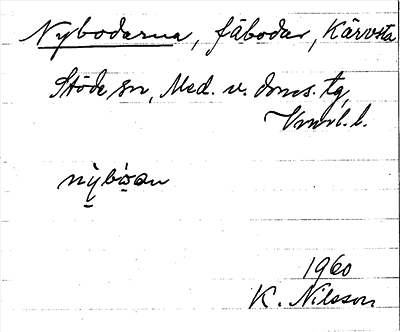 Nybodarna, fäbodar, Kärvsta
Stöde sn, Med. v. doms. tg,
Vnrl. l.
nybo̤an
1960
K. Nilsson